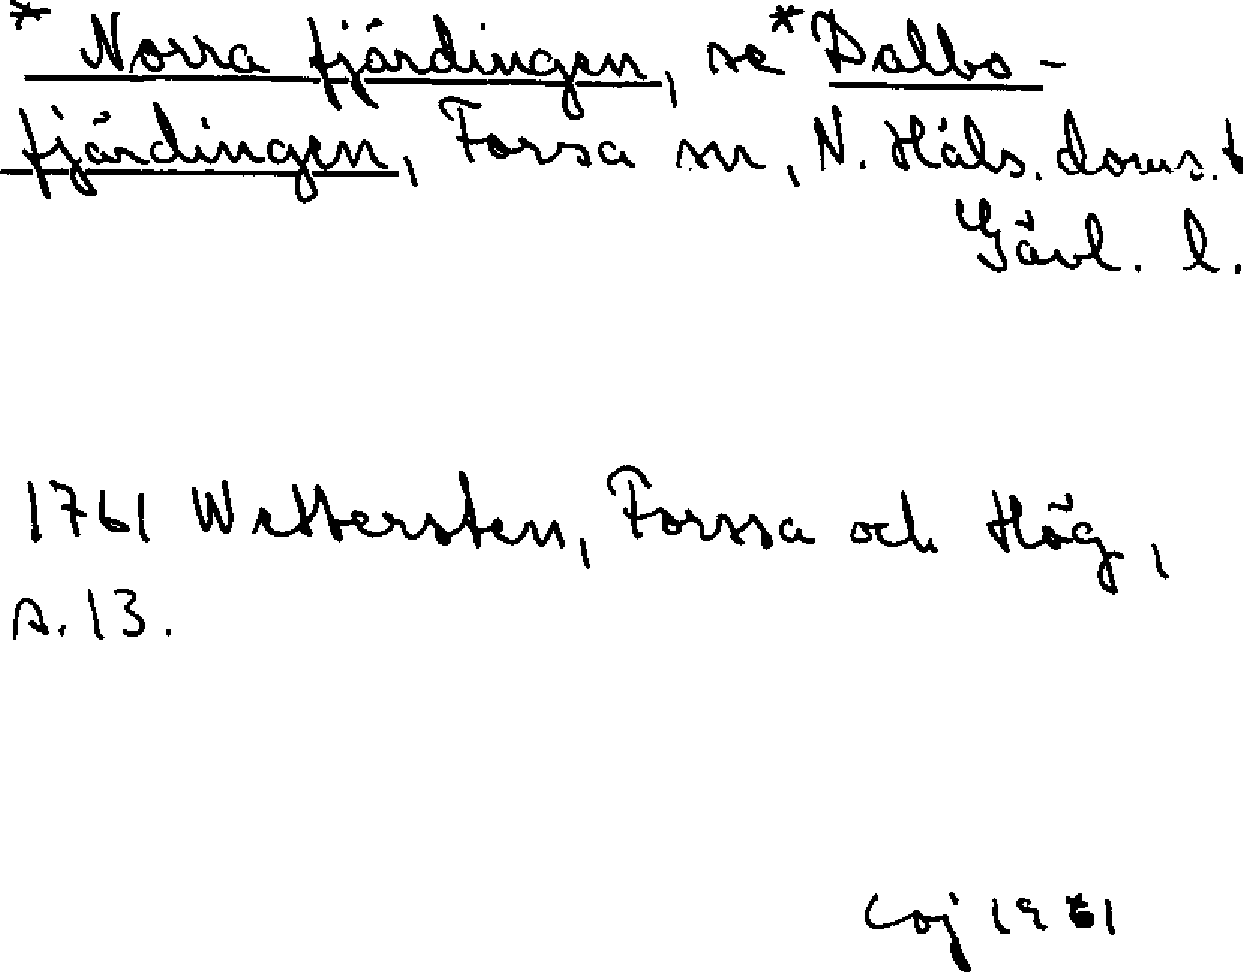 * Norra fjärdingen, se * Dalbo-
fjärdingen, Forsa sn, N. Häls. doms. t
Gävl. l.
1761 Wettersten, Forssa och Hög,
s. 13.
1961